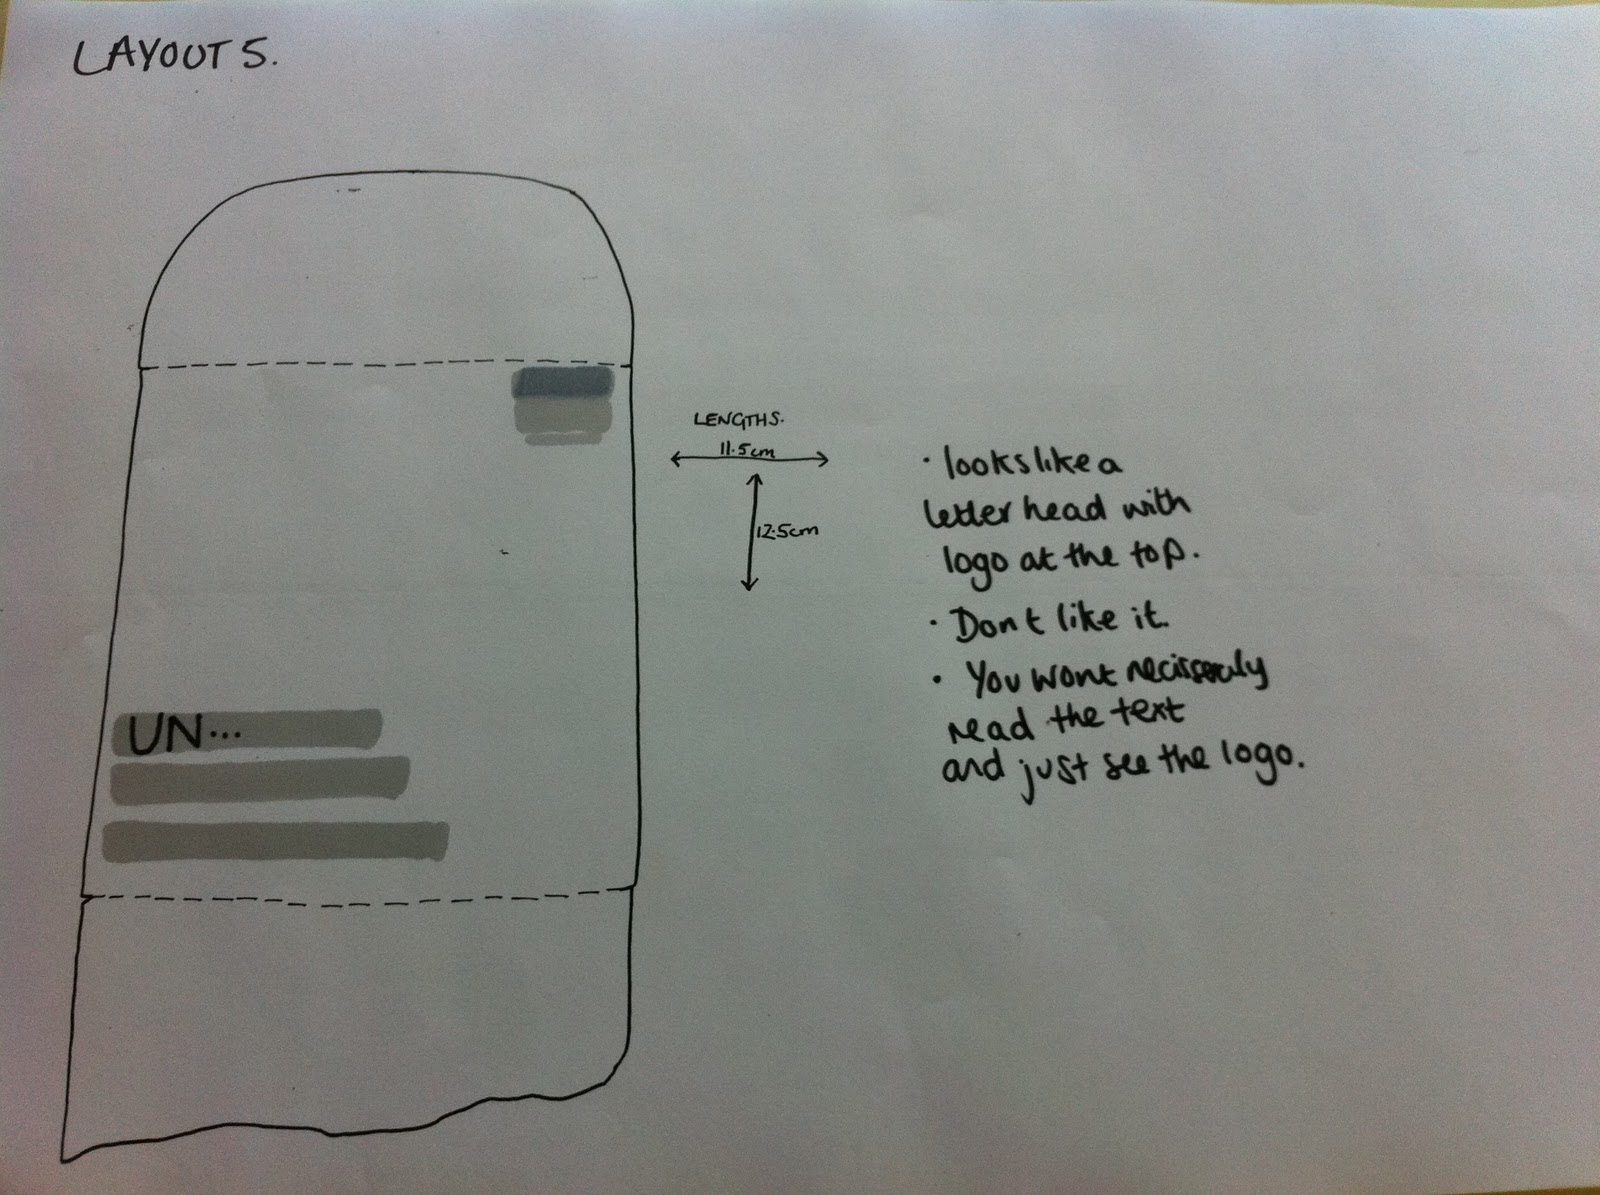 LAYOUT 5.
LENGTHS.
11.5cm
12.5cm
UN...
· looks like a
letter head with
logo at the top.
· Dont like it.
· You wont necisseruly
read the text
and just see the logo.